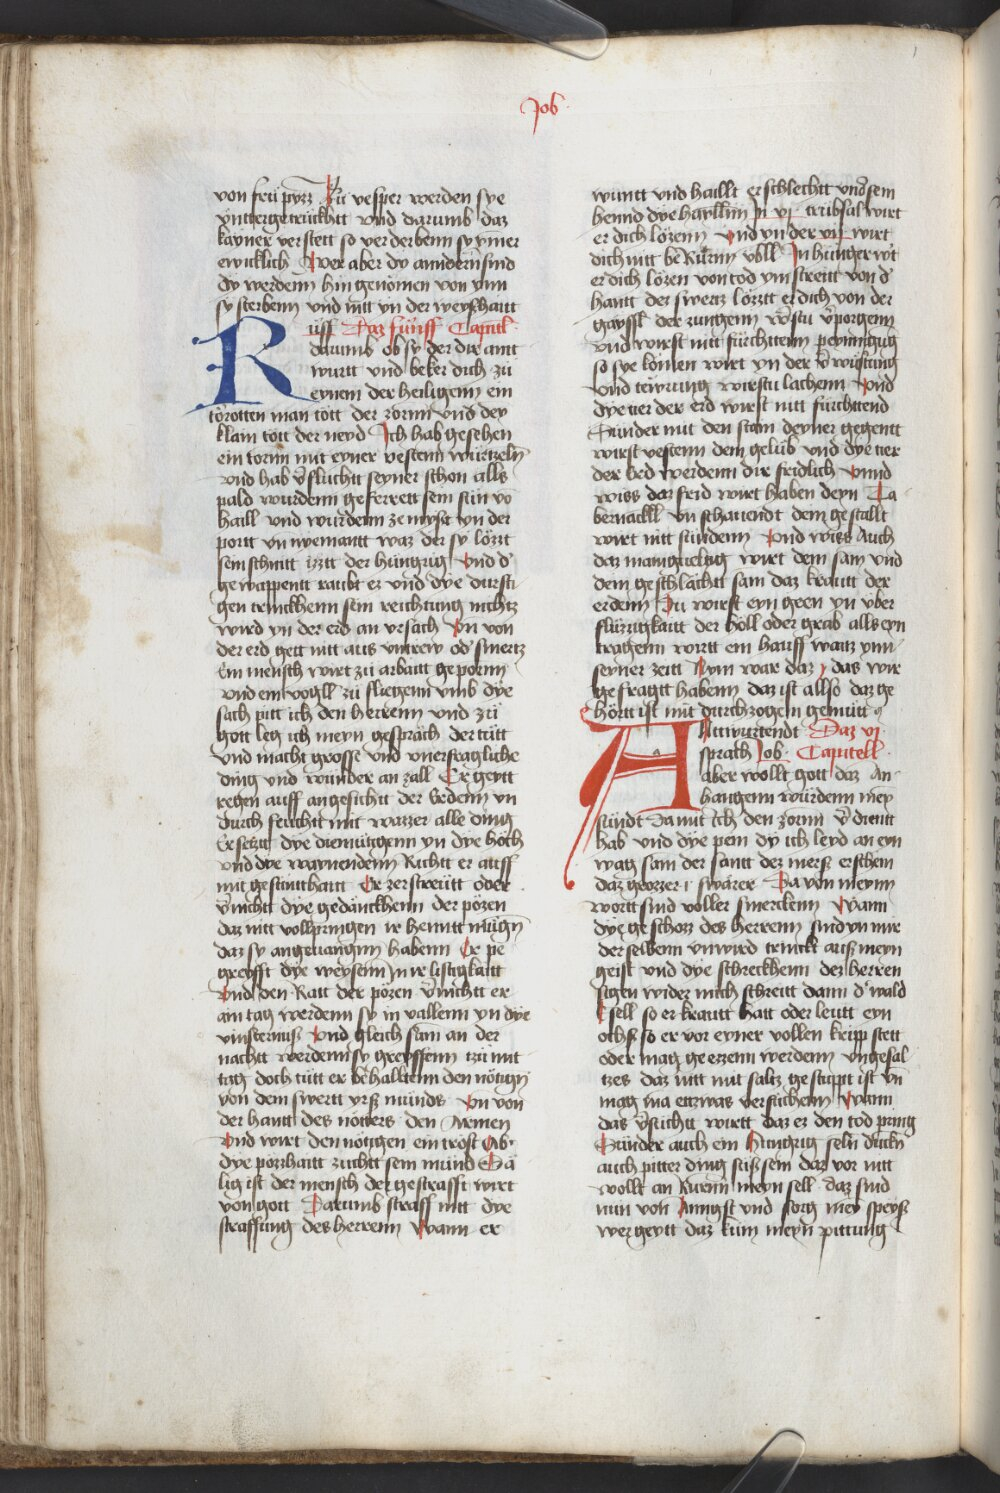 Job
von frü pyzz Zü vesper werden sye
vnttergetrückhtt vnd darumb daz
kayner verstett so verderbenn sy ymer
ewicklich Aber aber dy anndern sind
dy werdenn hin genomen von ynn
sy sterbenn vnd nitt yn der weyshaitt
Rüff Daz fünff Capitl
darumb ob sy der dir antt
wurtt vnd beker dich zü
eynem der heiligenn ein
törotten man tött der zornn vnd dey
klain tött der neyd Ich hab gesehen
ein tornn mit eyner vestenn würtzeln
vnd hab v̄flüchtt seyner schon alls
pald wurdenn geferrett sein sün vō
haill vnd wurdenn ze nyst yn der
portt vn nyemantt waz der sy lözzt
sein schnitt izztt der hüngrig vnd d'
gewappentt raubt er vnd dye dursti
gen trinckhenn sein reichtung nichtz
wird yn der erd an vrsach Vn von
der erd gett nitt aus vntrew od' smertz
Ein mensch wirt zü arbaitt geporn
vnd ein vogll zü fliegenn vmb dye
sach pitt ich den herrenn vnd zü
gott leg ich meyn gespräch der tütt
vnd macht grosse vnd vnerfragliche
ding vnd wunder an zall Er geytt
regen auff angesichtt der Erdenn vn
durch feuchtt mit wazzer alle ding
Er setztt dye diemüttigenn yn dye höch
vnd dye waynendenn Richtt er auff
mit gesunthaitt Er zerstreütt oder
v̄nichtt dye gedänckhenn der pözen
daz nitt vollpringen ir henntt mügn
daz sy angeuangnn habenn Er pe
greyfft dye weysenn in ir listigkaitt
vnd den Ratt der pözen v̄nichtt er
am tag werdenn sy in vallenn yn dye
vinsternus vnd gleich sam an der
nachtt werdenn sy greyffenn tzü mit
tag doch tütt er behalltenn den nöttign
von dem swertt yrs münds Vn von
der hantt des nötters den Armen
Vnd wirt den nöttigen ein trost Ab'
dye pözzhaitt züchtt sein mund Sä
lig ist der mensch der gestrafft wirt
von gott Darumb straff nitt dye
straffung des herrenn Wann er
wuntt vnd haillt er schlechtt vnd sein
hennd dye hayllnn In vj trübsal wirt
er dich lözenn Vnd yn der vij wirt
dich nitt be Rürnn vbll In hünger wt
er dich lözen von tod ynn streitt von d'
hantt des swertz lözztt er dich von der
gayssl der zungenn v̄stu v̄porgenn
vnd wirst nitt fürchttenn peynnigūg
so sye komen wirt yn der v̄wüstung
vnd tewrung wirstu lachenn Vnd
dye tier der erd wirst nitt fürchttend
Sünder mit den stain deyner gegentt
wirst vestenn dein gelüb vnd dye tier
der Erd werdenn dir fridlich Vnnd
wiss daz frid wirt haben deyn Ta
bernackl vn schauendt dein gestallt
wirt nitt sündenn Vnd wiss Auch
daz manigueltig wirt dein sam vnd
dein geschlächtt sam daz krautt der
erdenn Du wirst eyn geen yn vber
flüzzigkaitt der höll oder grab alls eyn
tragenn wirtt ein hauff waitz ynn
seyner zeitt Nym war daz das wir
gefragtt habenn daz ist allso daz ge
hörtt ist mit durchzogem gemütt
Anttwurtendt Daz vj
sprach Job Capitell
aber wollt gott daz An
hangenn würdenn mey
sündt Da mit ich den zornn v̄dientt
hab vnd dye pein dy ich leyd an eyn
wag sam der santt dez mers erschein
daz grozzer swärer Da von meynn
wortt sind voller smerckenn Wann
dye geschozz des herrenn sind yn mir
der selbenn vnwird trinckt aus meyn
geist vnd dye schreckhenn dez herren
sigen wider mich schreitt dann d' wald
Esell so er krautt hatt oder leütt eyn
ochs so er vor eyner vollen kripp stett
oder mag geezzenn werdenn vngesal
tzes daz nitt mit saltz gestüppt ist Vn
mag ma ettzwas versüchenn Wann
das v̄süchtt wirtt daz ez den tod pring
Sünder auch ein Hungrig seln dückn
auch pitter ding süß sein daz vor nitt
wollt an Rürnn meyn sell daz sind
nun von Anngst vnd sorg mey speyß
wer geytt daz kum meyn pittung